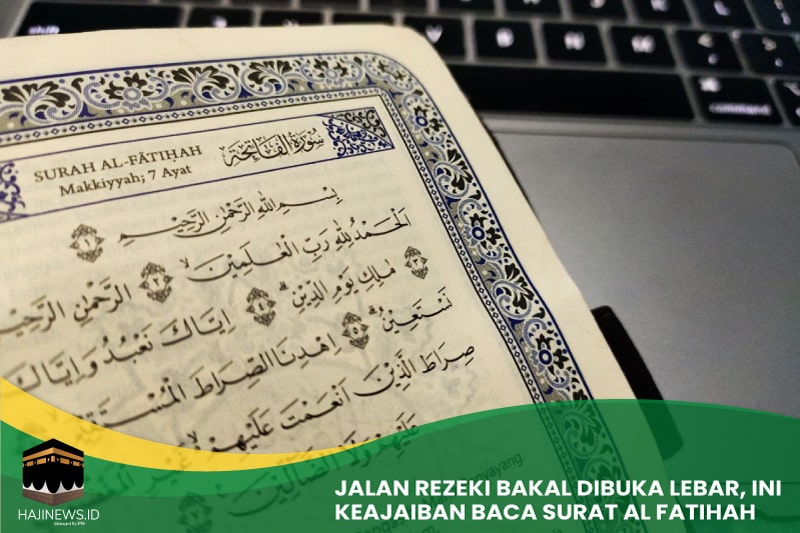 SURAH AL-FĀTIḤAH
Makkiyyah; 7 Ayat
سُوْرَةُ الْفَاتِحَةِ
بِسْمِ اللّٰهِ الرَّحْمٰنِ الرَّحِيْمِ ١
اَلْحَمْدُ لِلّٰهِ رَبِّ الْعٰلَمِيْنَۙ ٢ الرَّحْمٰنِ الرَّحِيْ
٣ مٰلِكِ يَوْمِ الدِّيْنِۗ ٤ اِيَّاكَ نَعْبُدُ وَاِيَّاكَ
نَسْتَعِيْنُۗ ٥ اِهْدِنَا الصِّرَاطَ الْمُسْتَقِيْ
صِرَاطَ الَّذِيْنَ اَنْعَمْتَ عَلَيْهِمْ ەۙ غَيْرِ
عَلَيْهِمْ وَلَا الضَّاۤلِّيْنَ
command
HAJINEWS.ID
JALAN REZEKI BAKAL DIBUKA LEBAR, INI
KEAJAIBAN BACA SURAT AL FATIHAH